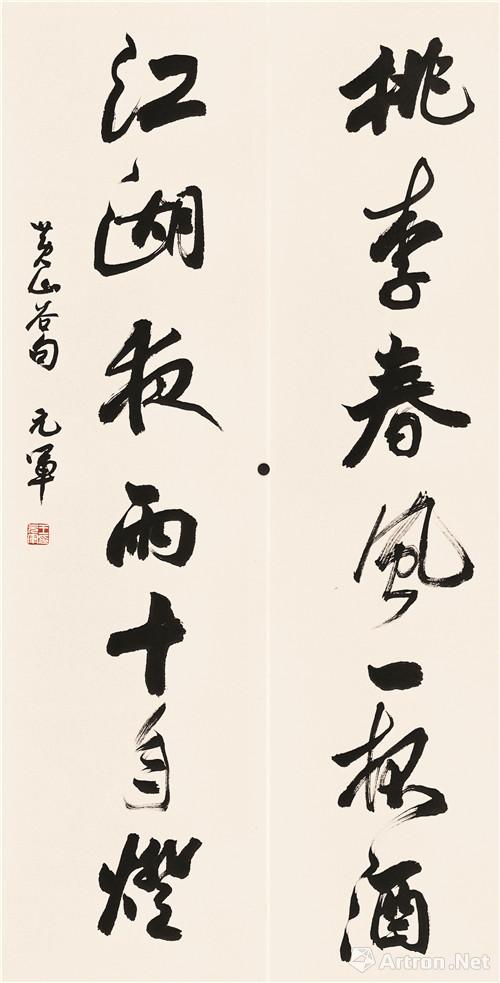 桃李春風一杯酒
江湖夜雨十年燈
黄山谷句 元軍
Artron.Net